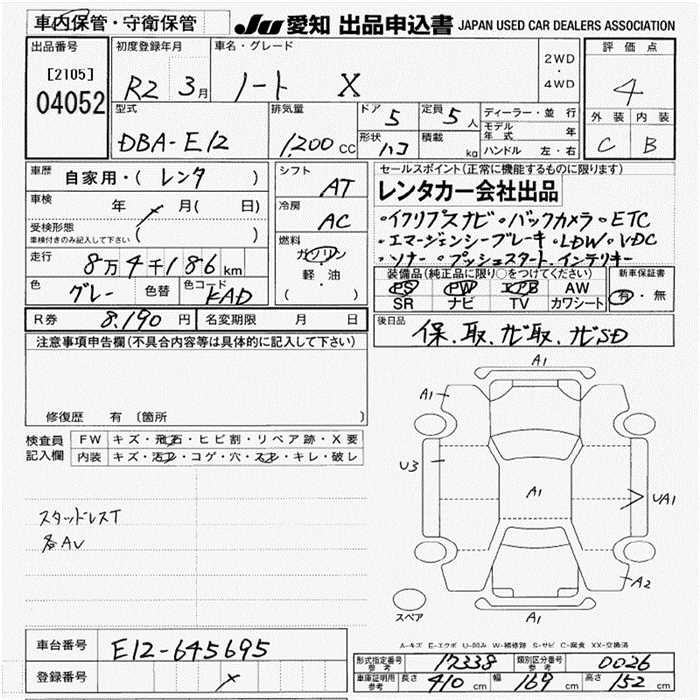 車内保管・守衛保管
JU 愛知 出品申込書 JAPAN USED CAR DEALERS ASSOCIATION
出品番号 初度登録年月 車名・グレード 2WD・4WD 評価点
[2105] R2 3月 ノート X 4
04052
型式 排気量 ドア 5 定員 5人 ディーラー・並行 外装 内装
DBA-E12 1,200cc 形状 ハコ 積載 kg モデル年式 年 C B
ハンドル 左・右
車歴 自家用・(レンタ) シフト AT セールスポイント(正常に機能するものに限ります)
車検 年 月( 日) 冷房 AC レンタカー会社出品
受検形態 ( )
車検付きのみ記入して下さい
燃料 ガソリン 軽・油 ( )
走行 8万4千186km
色 グレー 色替 色コード KAD
•イクリプスナビ •バックカメラ •ETC
•エマージェンシーブレーキ •LDW •VDC
•ソナー •プッシュスタート インテリキー
装備品(純正品に限り○をつけてください) 新車保証書
PS PW エアB AW 有・無
SR ナビ TV カワシート
R券 8,190円 名変期限 月 日
後日品 保、取、ナビ取、ナビSD
注意事項申告欄(不具合内容等は具体的に記入して下さい)
修復歴 有 〔箇所 〕
検査員記入欄 FW キズ・飛石・ヒビ割・リペア跡・X要
内装 キズ・汚レ・コゲ・穴・スレ・キレ・破レ
スタッドレスT
各AU
A1
A1
U3
A1
UA1
A2
A1
スペア
A-キズ E-エクボ U-凹み W-補修跡 S-サビ C-腐食 XX-交換済
車台番号 E12-645695
登録番号
形式指定番号 参考 17338 類別区分番号 参考 0026
車庫証明用 参考 長さ 410cm 幅 169cm 高さ 152cm